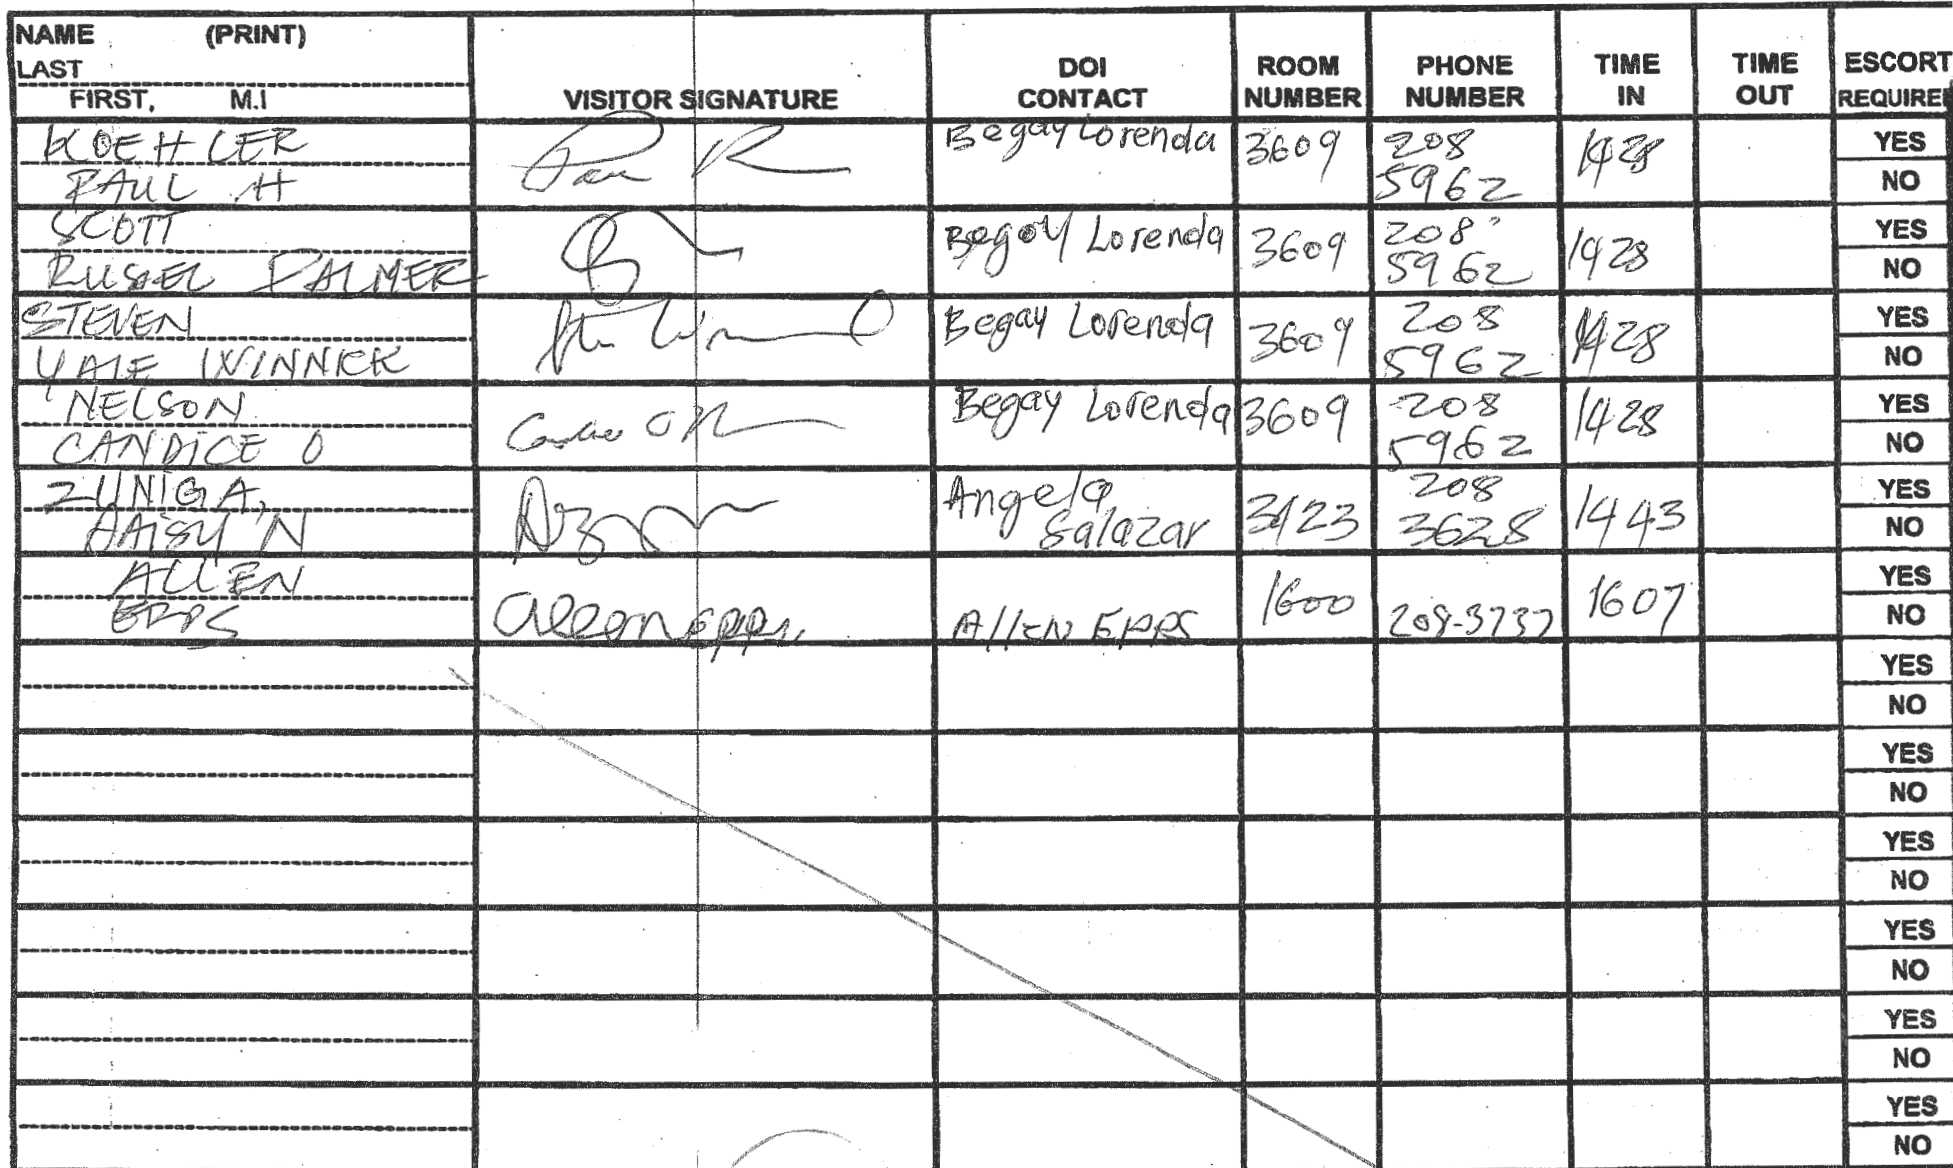 NAME (PRINT)
LAST
FIRST, M.I
VISITOR SIGNATURE
DOI
CONTACT
ROOM
NUMBER
PHONE
NUMBER
TIME
IN
TIME
OUT
ESCORT
REQUIRED
KOEHLER
PAUL H
Begay Lorenda
3609
208
5962
1428
YES
NO
SCOTT
RUSSEL PALMER
Begay Lorenda
3609
208
5962
1428
YES
NO
STEVEN
YALE WINNICK
Begay Lorenda
3609
208
5962
1428
YES
NO
NELSON
CANDICE O
Begay Lorenda
3609
208
5962
1428
YES
NO
ZUNIGA,
DAISY N
Angela
Salazar
3423
208
3628
1443
YES
NO
ALLEN
EPPS
Allen Epps
AllEN EPPS
1600
208-3737
1607
YES
NO
YES
NO
YES
NO
YES
NO
YES
NO
YES
NO
YES
NO